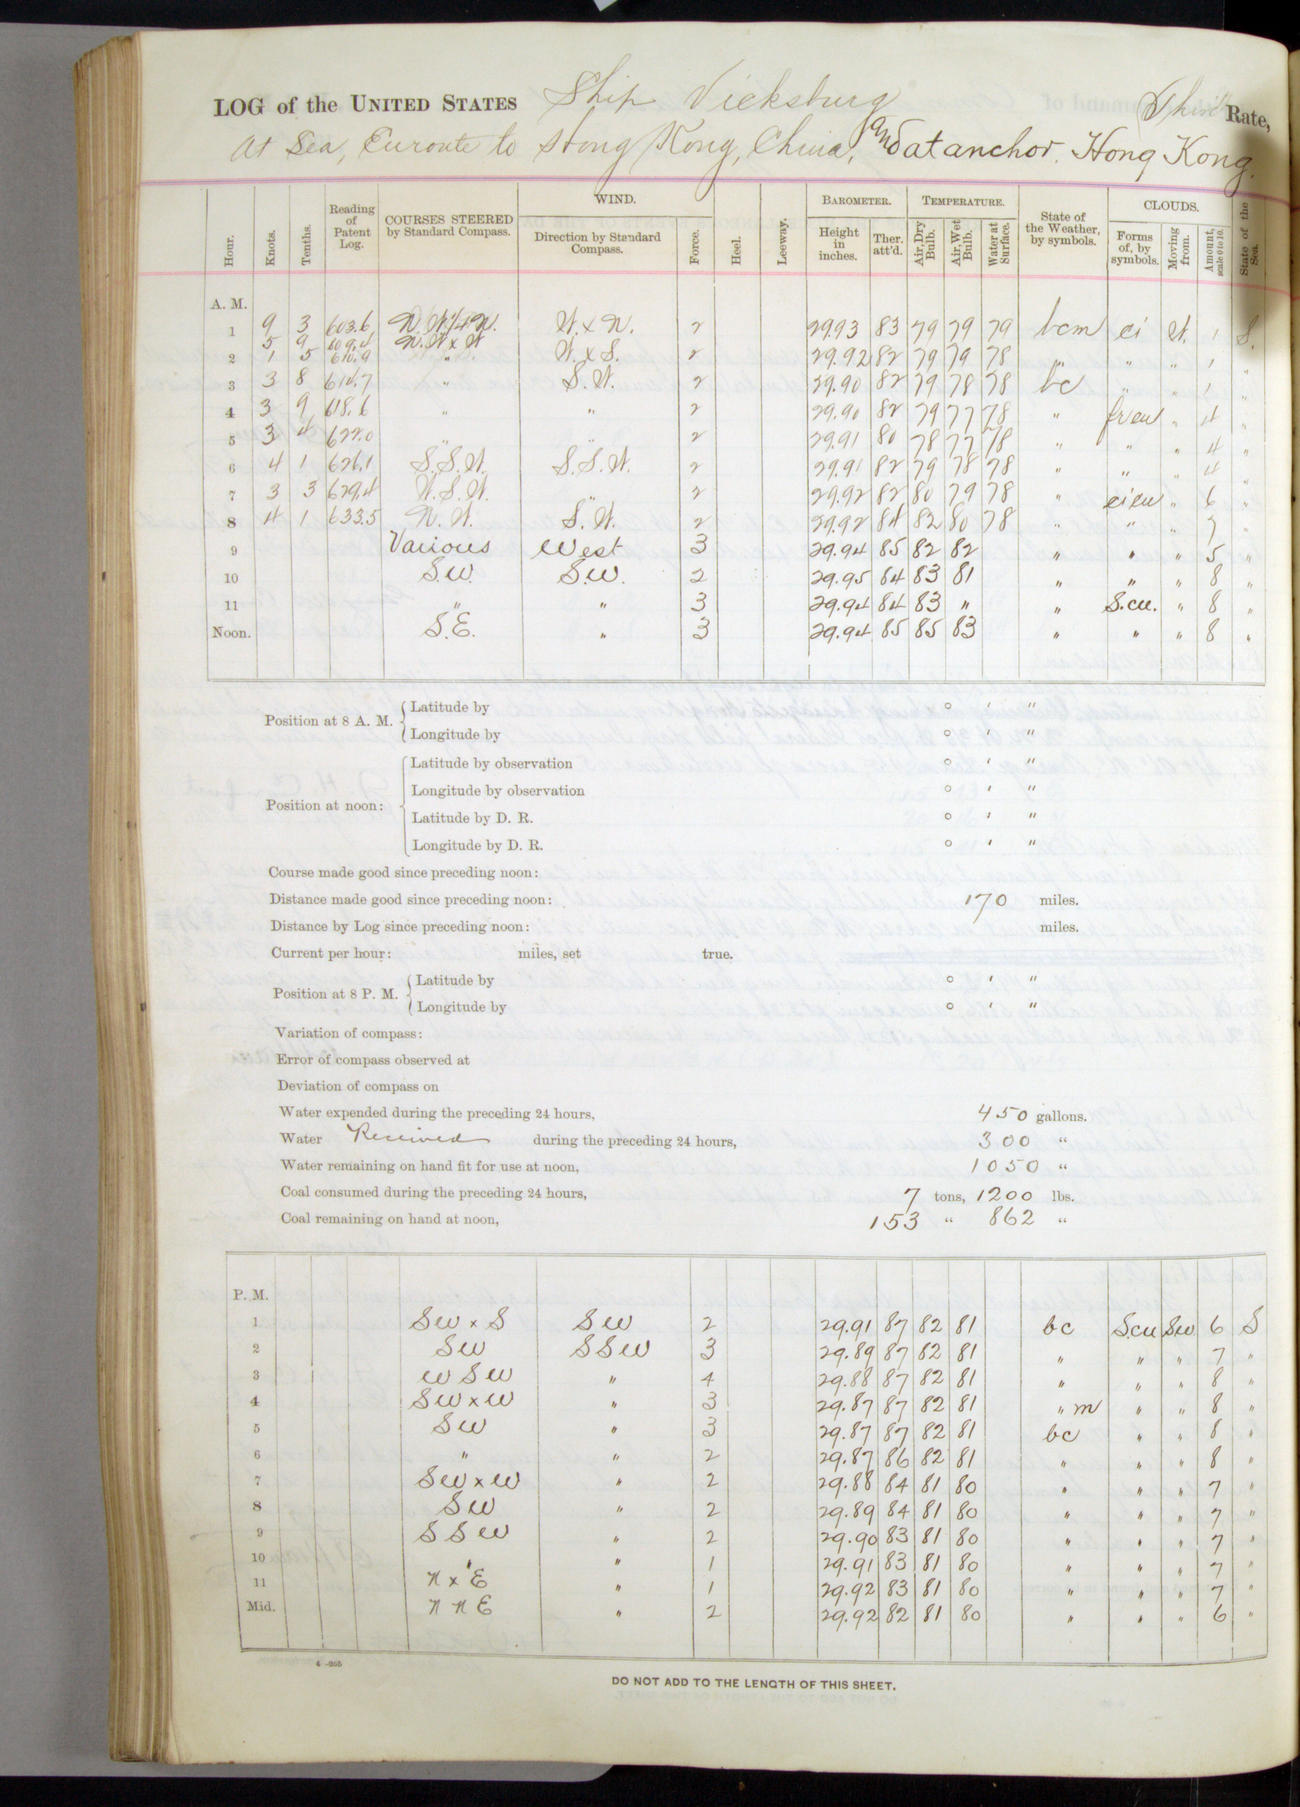 LOG of the UNITED STATES Ship Vicksburg Third Rate,
At Sea, Enroute to Hong Kong, China, and at anchor. Hong Kong.
Hour. Knots. Tenths. Reading of Patent Log. COURSES STEERED by Standard Compass. WIND. Direction by Standard Compass. Force. Heel. Leeway. BAROMETER. Height in inches. Ther. att'd. TEMPERATURE. Air, Dry Bulb. Air, Wet Bulb. Water at Surface. State of the Weather, by symbols. CLOUDS. Forms of, by symbols. Moving from. Amount, scale 0 to 10. State of the Sea.
A. M.
1 9 3 603.6 N.W.¼N. W. x N. 2 29.93 83 79 79 79 bcm ci W. 1 S.
5 9 609.4 N.W x W
2 1 5 610.9 " W. x S. 2 29.92 82 79 79 78 " " " 1 "
3 3 8 614.7 " S.W. 2 29.90 82 79 78 78 bc " " 1 "
4 3 9 618.6 " " 2 29.90 82 79 77 78 " fr cu " 4 "
5 3 4 622.0 " " 2 29.91 80 78 77 78 " " " 4 "
6 4 1 626.1 S.S.W. S.S.W. 2 29.91 82 79 78 78 " " " 4 "
7 3 3 629.4 W.S.W. " 2 29.92 82 80 79 78 " ci cu " 6 "
8 4 1 633.5 N.W. S.W. 2 29.92 84 82 80 78 " " " 7 "
9 Various West 3 29.94 85 82 82 " " " 5 "
10 S.W. S.W. 2 29.95 84 83 81 " " " 8 "
11 " " 3 29.94 84 83 " " S.cu. " 8 "
Noon. S.E. " 3 29.94 85 85 83 " " " 8 "
Position at 8 A. M. Latitude by ° ′ ″
Longitude by ° ′ ″
Latitude by observation ° ′ ″
Longitude by observation ° ′ ″
Position at noon:
Latitude by D. R. ° ′ ″
Longitude by D. R. ° ′ ″
Course made good since preceding noon:
Distance made good since preceding noon: 170 miles.
Distance by Log since preceding noon: miles.
Current per hour: miles, set true.
Position at 8 P. M. Latitude by ° ′ ″
Longitude by ° ′ ″
Variation of compass:
Error of compass observed at
Deviation of compass on
Water expended during the preceding 24 hours, 450 gallons.
Water Received during the preceding 24 hours, 300 "
Water remaining on hand fit for use at noon, 1050 "
Coal consumed during the preceding 24 hours, 7 tons, 1200 lbs.
Coal remaining on hand at noon, 153 " 862 "
P. M.
1 SW x S SW 2 29.91 87 82 81 bc Scu SW 6 S
2 SW SSW 3 29.89 87 82 81 " " " 7 "
3 WSW " 4 29.88 87 82 81 " " " 8 "
4 SW x W " 3 29.87 87 82 81 " m " " 8 "
5 SW " 3 29.87 87 82 81 bc " " 8 "
6 " " 2 29.87 86 82 81 " " " 8 "
7 SW x W " 2 29.88 84 81 80 " " " 7 "
8 SW " 2 29.89 84 81 80 " " " 7 "
9 SSW " 2 29.90 83 81 80 " " " 7 "
10 " " 1 29.91 83 81 80 " " " 7 "
11 N x E " 1 29.92 83 81 80 " " " 7 "
Mid. N N E " 2 29.92 82 81 80 " " " 6 "
4—265
DO NOT ADD TO THE LENGTH OF THIS SHEET.